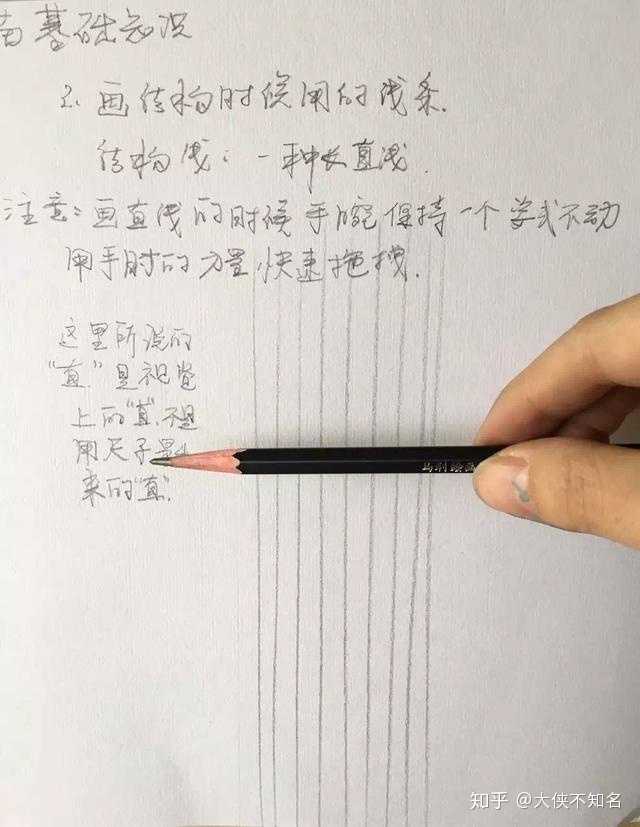 苗基础知识
2. 画结构时候用的线条.
结构线：一种长直线.
注意：画直线的时候手腕保持一个姿式不动
用手肘的力量,快速拖拽.
这里所说的
"直"是视觉
上的"直",不是
用尺子量
来的"直".
马利
知乎 @大侠不知名